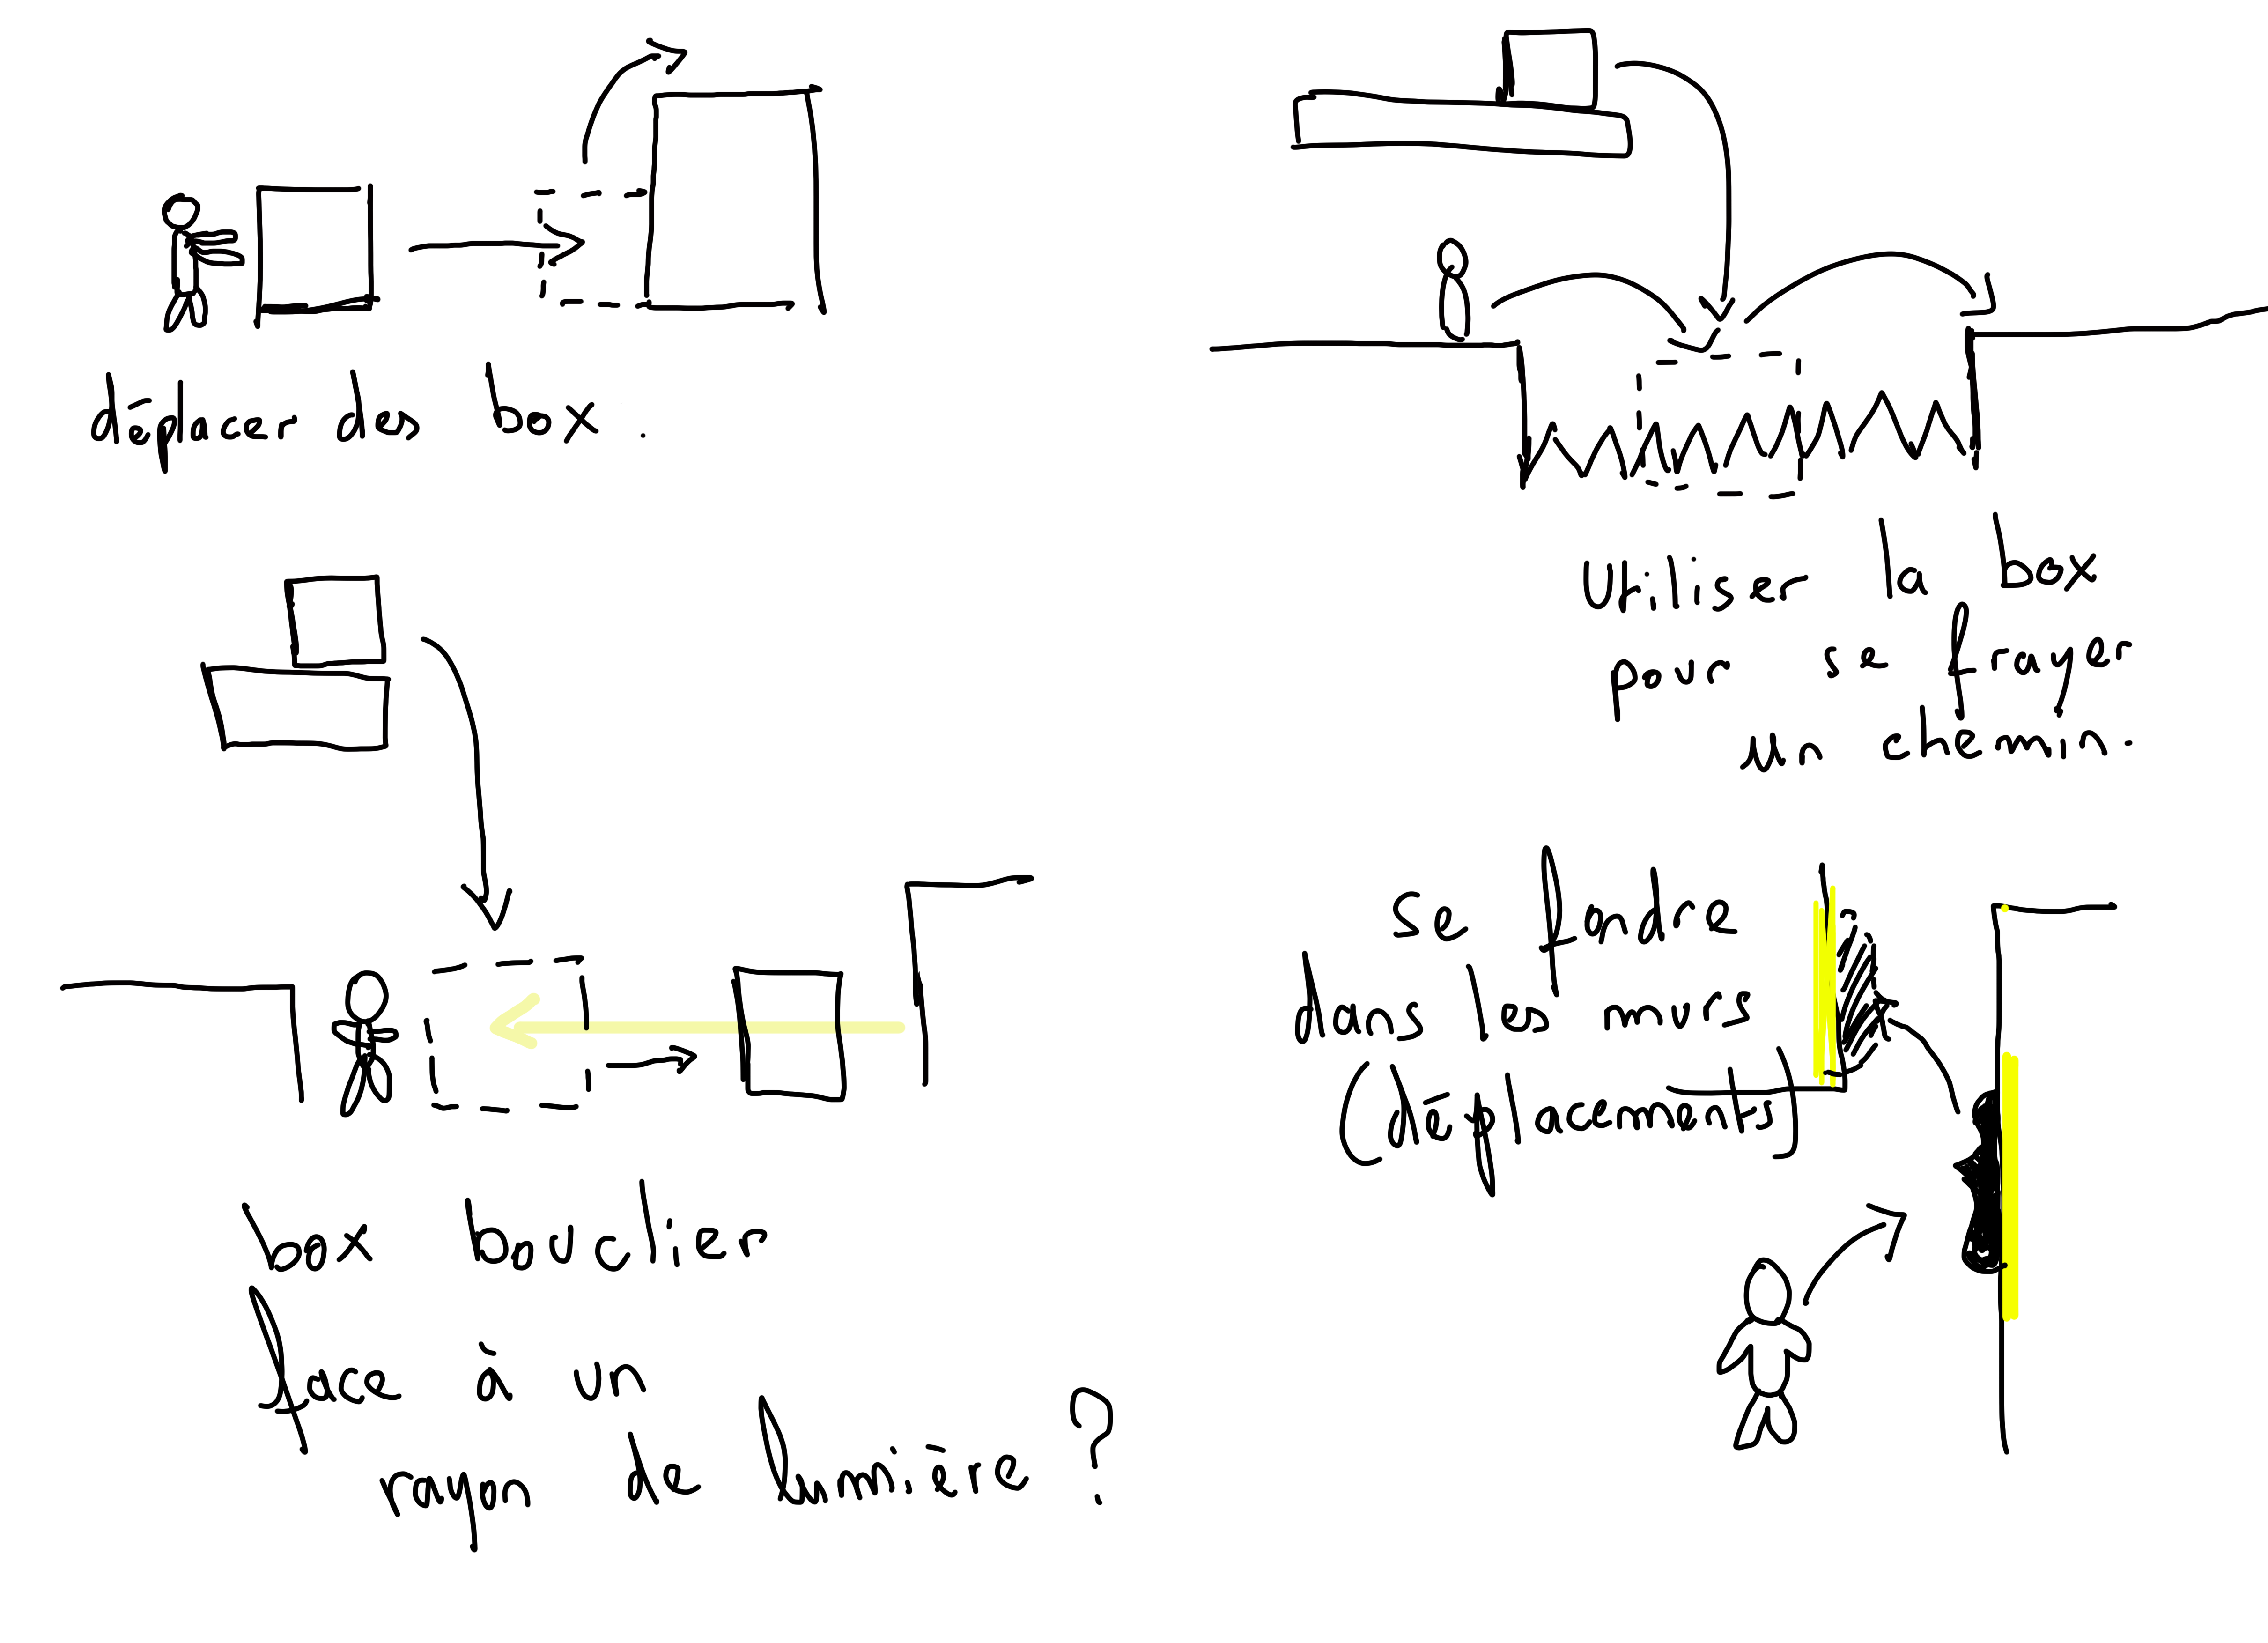 déplacer des box.
Utiliser la box
pour se frayer
un chemin.
box bouclier
face à un
rayon de lumière ?
Se fondre
dans les murs
(déplacements)